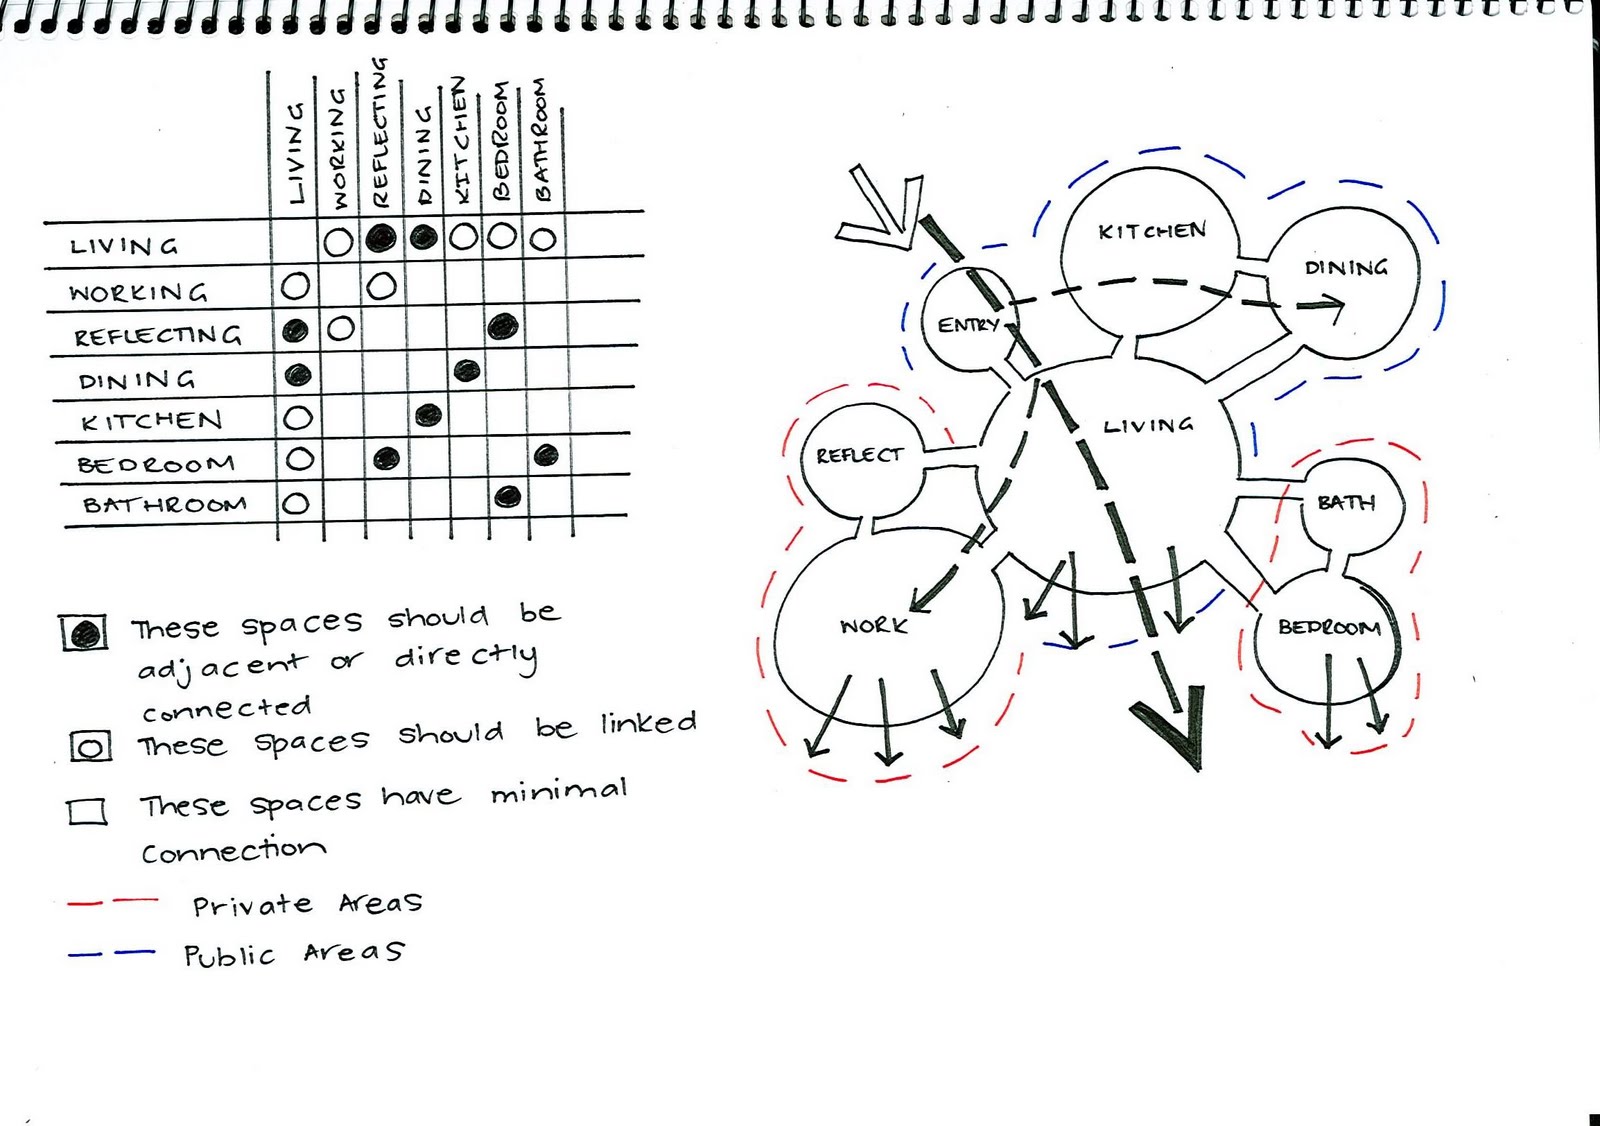 LIVING
WORKING
REFLECTING
DINING
KITCHEN
BEDROOM
BATHROOM
LIVING
WORKING
REFLECTING
DINING
KITCHEN
BEDROOM
BATHROOM
These spaces should be
adjacent or directly
connected
These spaces should be linked
These spaces have minimal
connection
Private Areas
Public Areas
KITCHEN
DINING
ENTRY
LIVING
REFLECT
BATH
WORK
BEDROOM